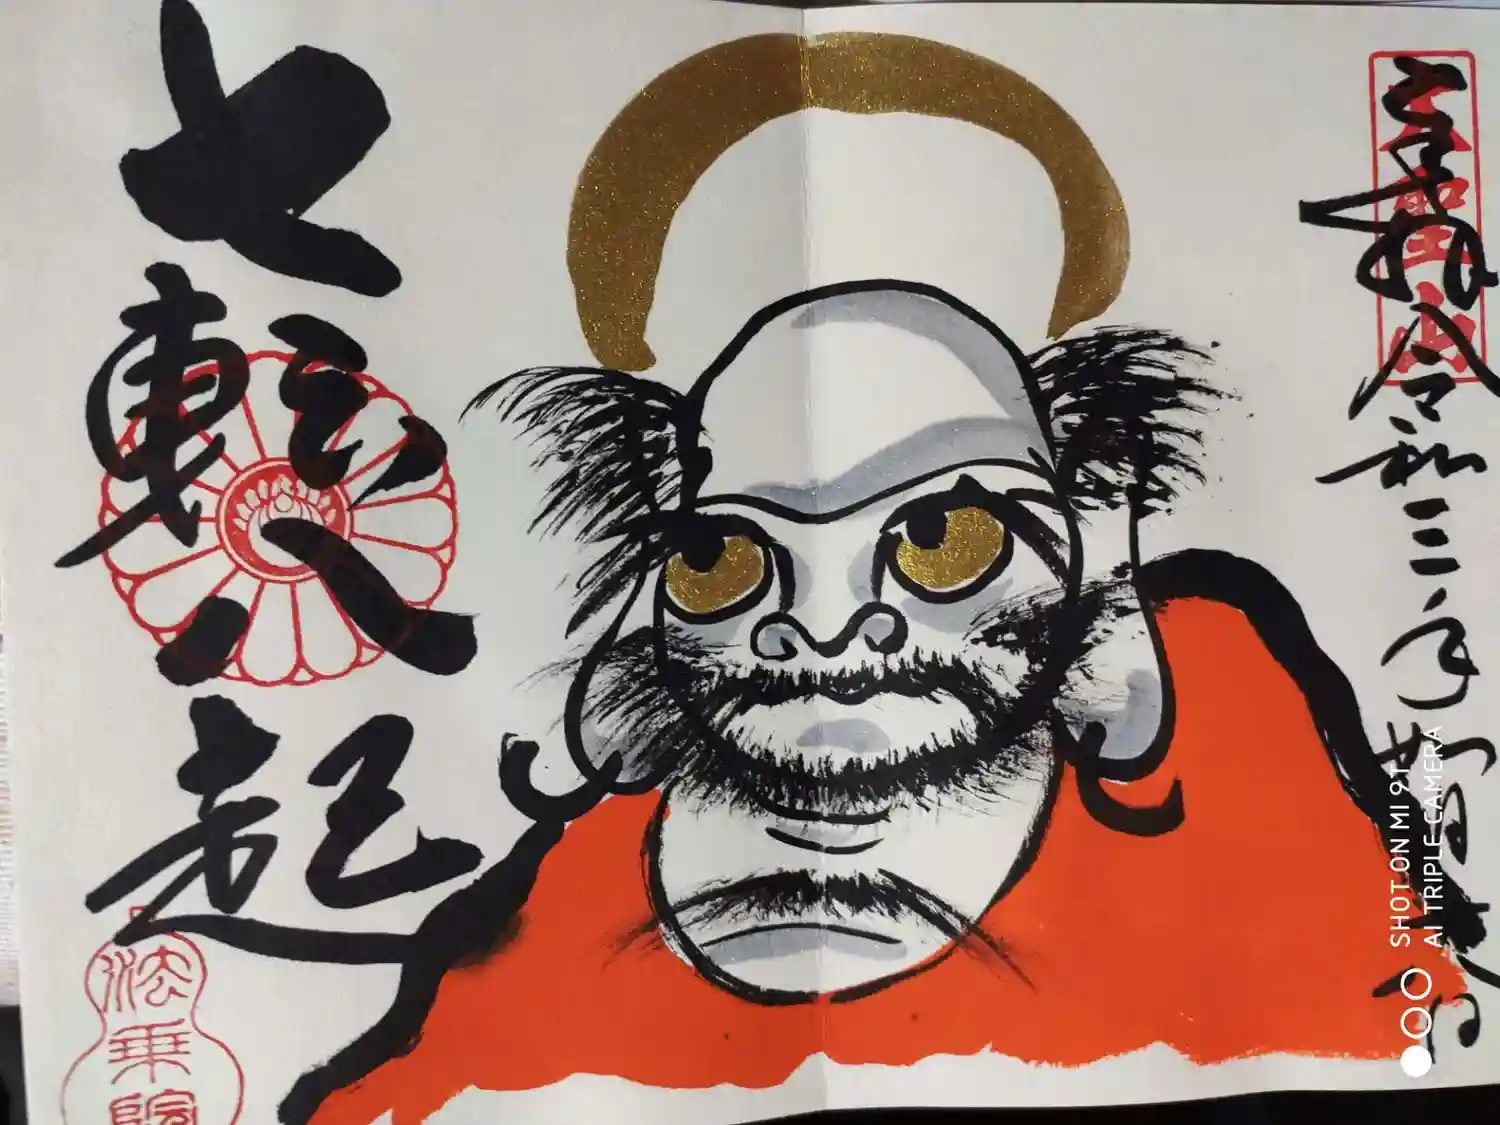 奉拝 令和三年
七轉八起
法乗院
SHOT ON MI 9T
AI TRIPLE CAMERA